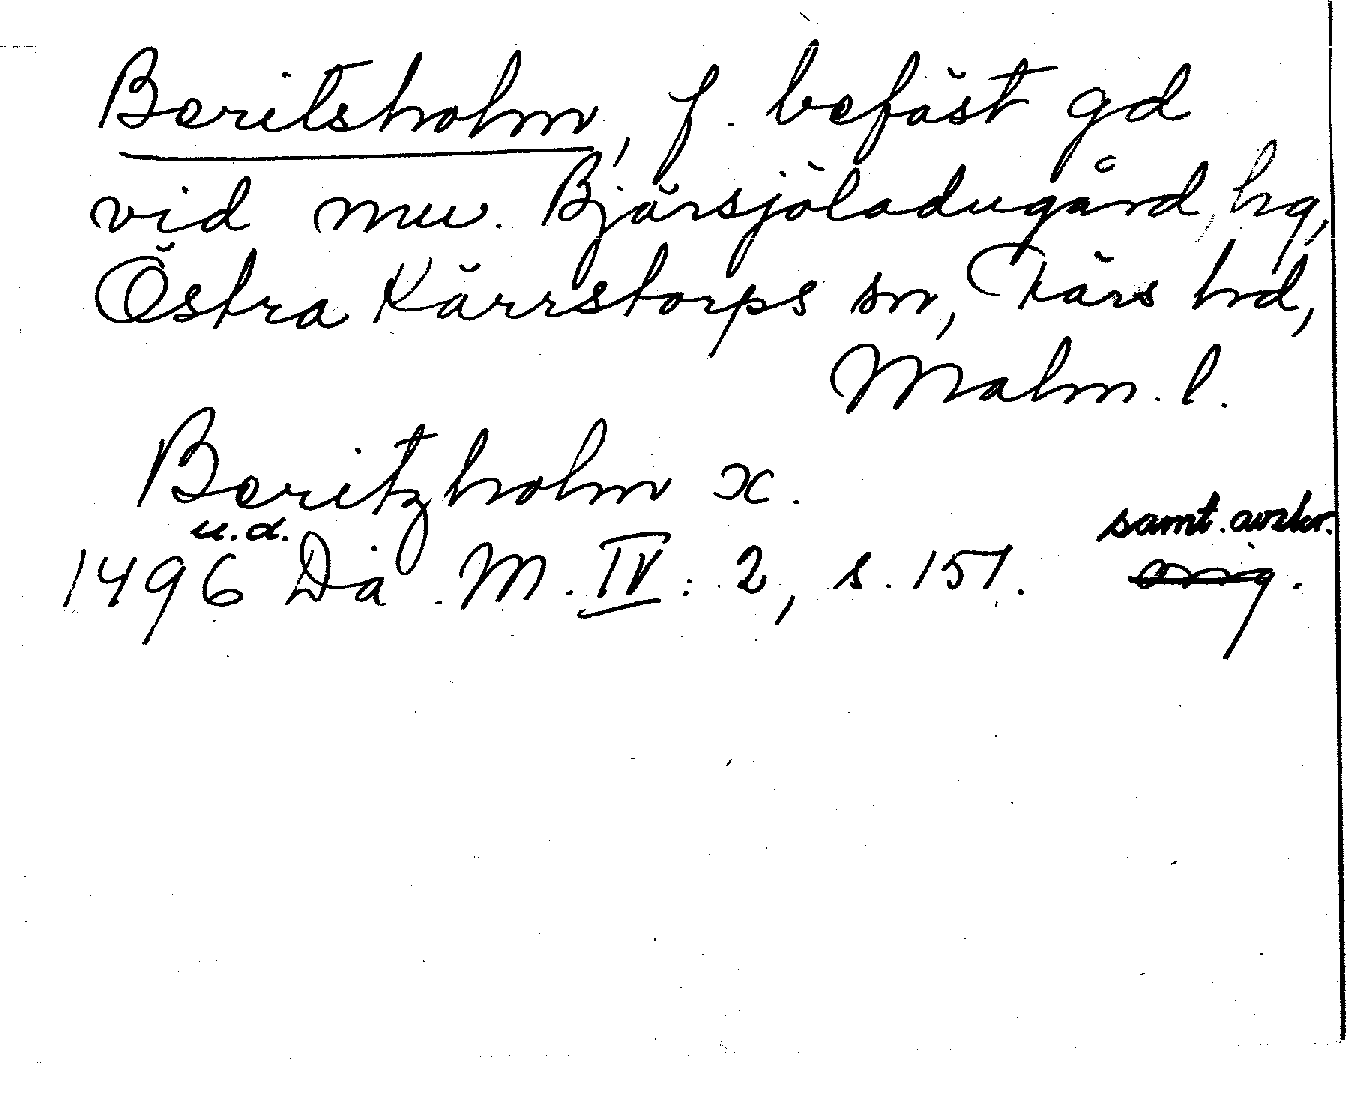 Beritsholm, f. befäst gd
vid nuv. Bjärsjöladugård, hg,
Östra Kärrstorps sn, Färs hd,
Malm. l.
Beritzholm x.
u.d.
samt. avskr.
1496 Da. M. IV: 2, s. 151. orig.